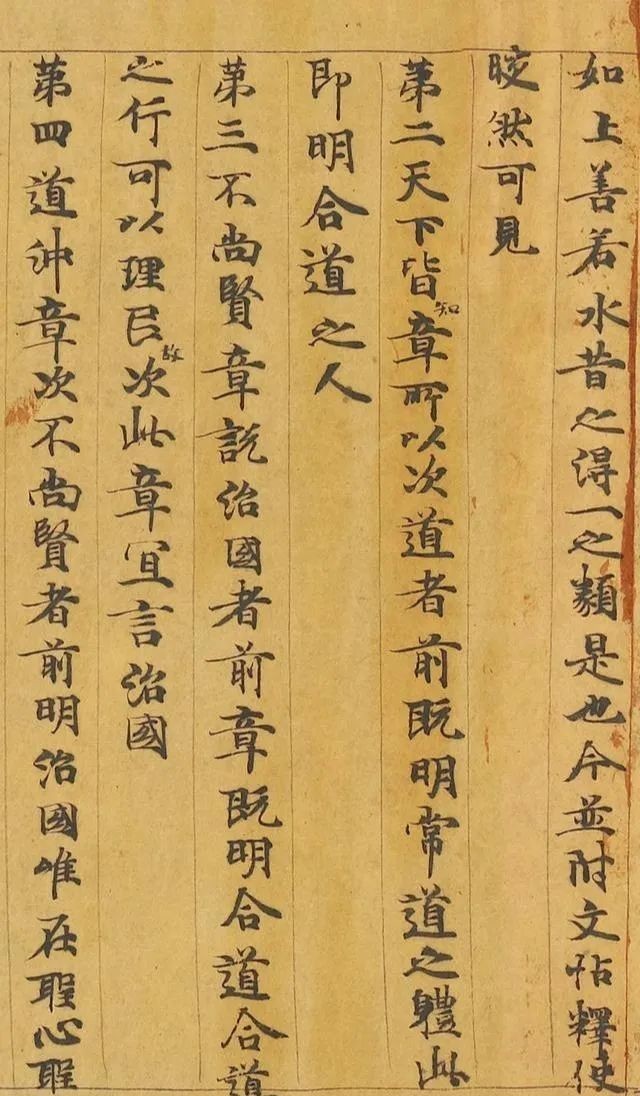 如上善若水昔之得一之類是也今並附文怗釋使
晈然可見
第二天下皆知章所以次道者前既明常道之體此
即明合道之人
第三不尚賢章說治國者前章既明合道合道
之行可以理民故次此章宜言治國
第四道沖章次不尚賢者前明治國唯在聖心聖